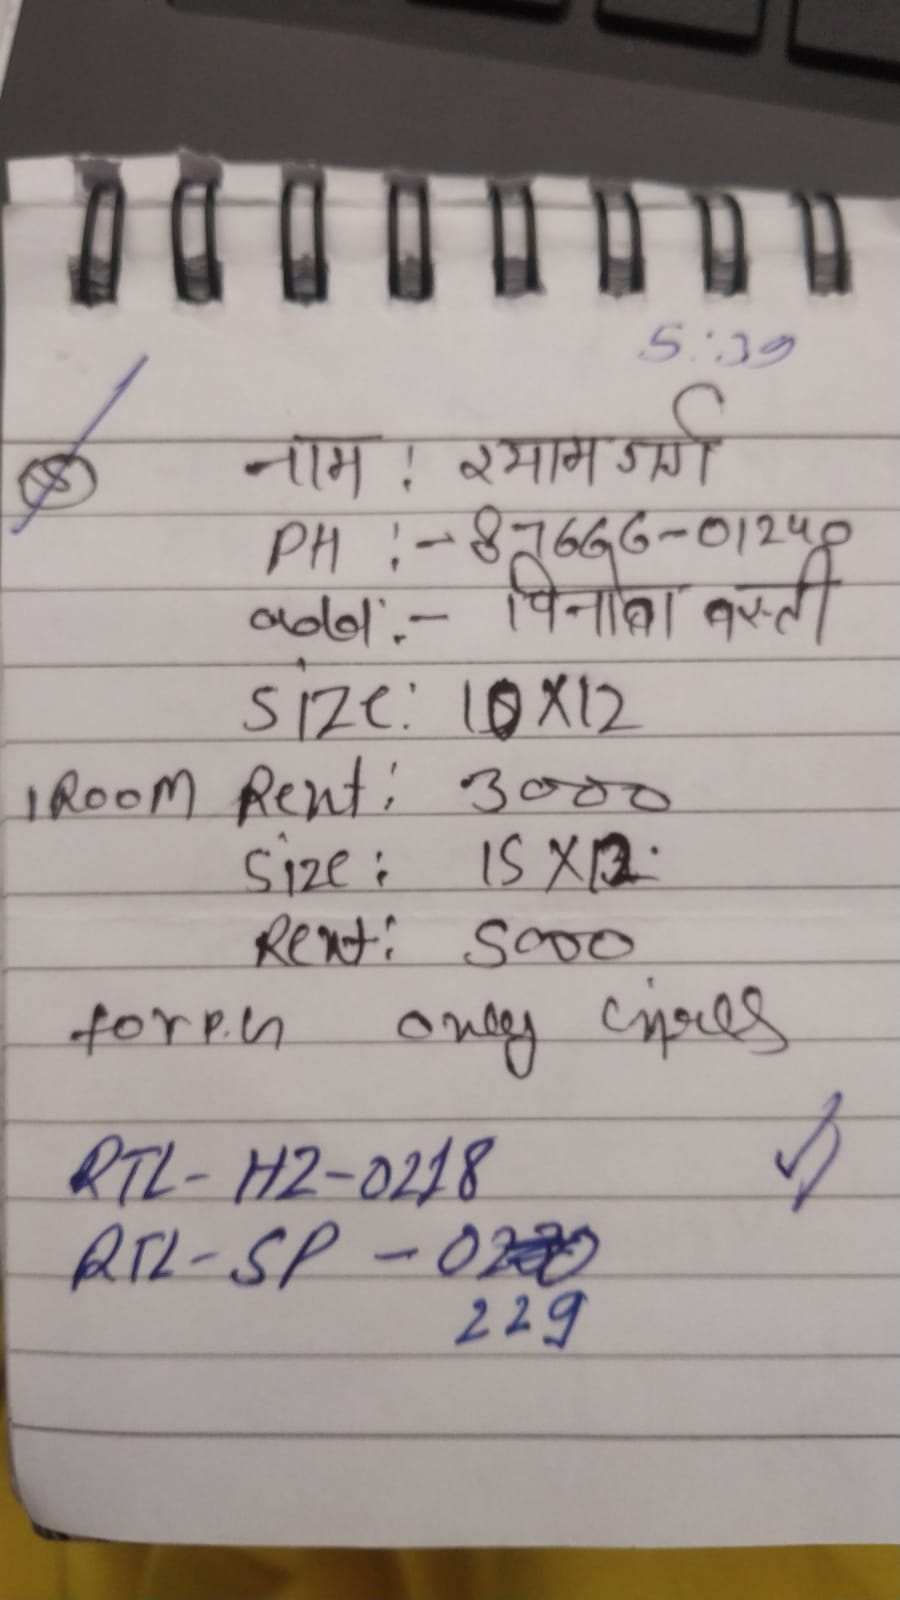 5:39
नाम : श्याम गर्ग
PH :- 87666-01240
add :- विनोबा बस्ती
SIZE: 10X12
1 ROOM Rent: 3000
Size: 15X12
Rent: 5000
for P.G only
RTL-H2-0218
RTL-SP-0
229